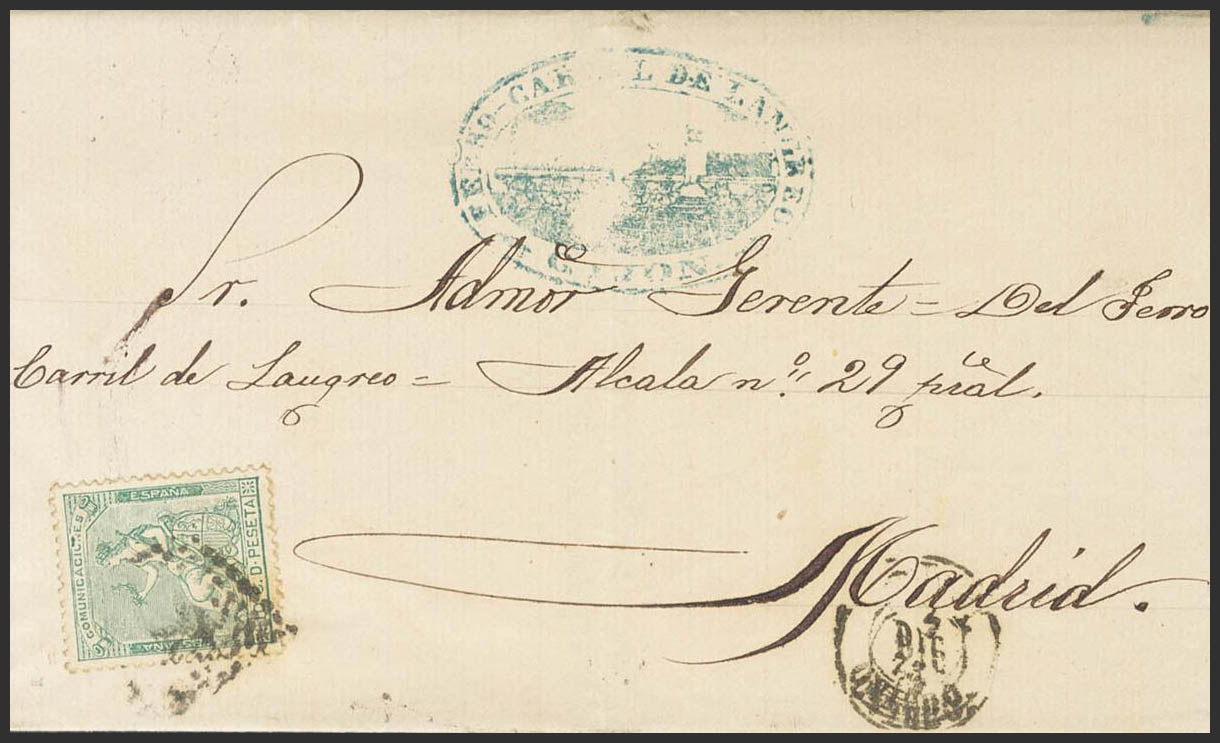 FERRO-CARRIL DE LANGREO
GIJON
Sr. Admor Gerente = Del Ferro
Carril de Langreo = Alcala nº 29 pral.
Madrid.
COMUNICACIONES
ESPAÑA
C. D. PESETA
DIC